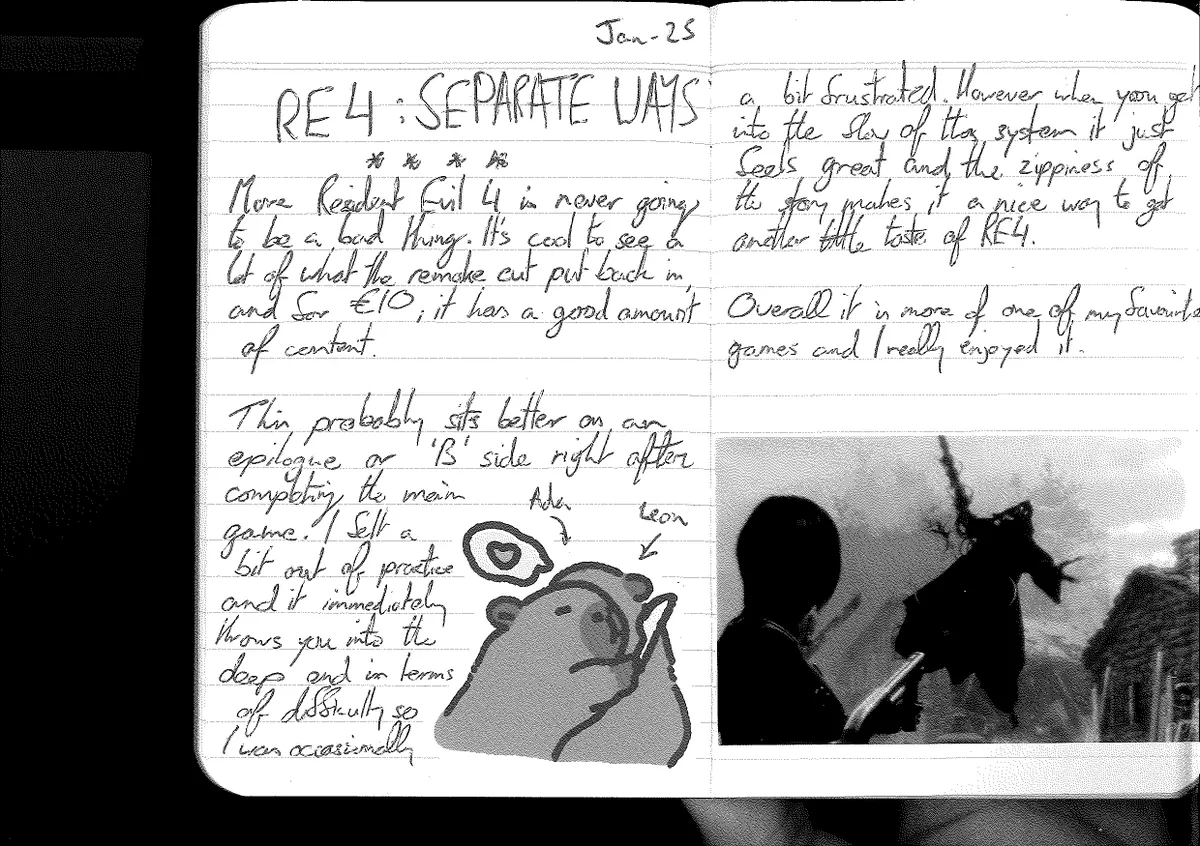 Jan-25
RE4: SEPARATE WAYS
* * * *
More Resident Evil 4 is never going
to be a bad thing. It's cool to see a
lot of what the remake cut put back in,
and for €10, it has a good amount
of content.
This probably sits better as an
epilogue or 'B' side right after
completing the main
game. I felt a
bit out of practice
and it immediately
throws you into the
deep end in terms
of difficulty so
I was occasionally
Ada
Leon
a bit frustrated. However when you get
into the flow of the system it just
feels great and the zippiness of
the story makes it a nice way to get
another little taste of RE4.
Overall it is more of one of my favourite
games and I really enjoyed it.